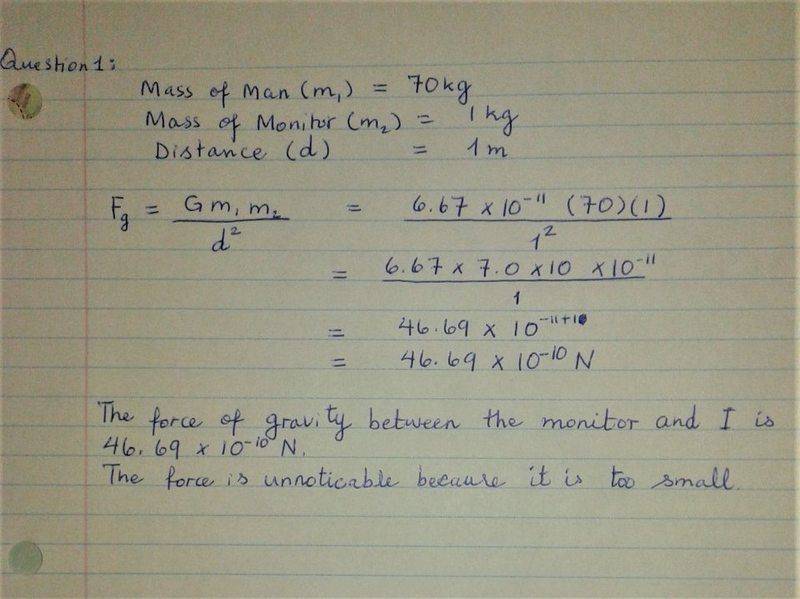 Question 1:
Mass of Man (m₁) = 70kg
Mass of Monitor (m₂) = 1 kg
Distance (d) = 1 m
Fg = G m₁ m₂ / d² = 6.67 x 10⁻¹¹ (70)(1) / 1²
= 6.67 x 7.0 x 10 x 10⁻¹¹ / 1
= 46.69 x 10⁻¹¹⁺¹
= 46.69 x 10⁻¹⁰ N
The force of gravity between the monitor and I is
46.69 x 10⁻¹⁰ N.
The force is unnoticable because it is too small.